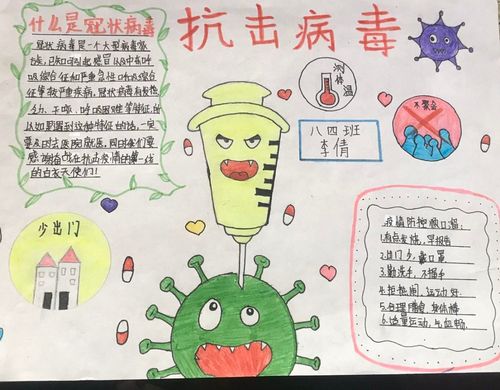 抗击病毒
什么是冠状病毒
冠状病毒是一个大型病毒家
族,已知可引起感冒以及中东呼
吸综合征和严重急性呼吸综合
征等较严重疾病,冠状病毒有发热
乏力、干咳、呼吸困难等特征,所
以如果遇到这种特征的话,一定
要及时去医院就医,同时我们要
感谢奋战在抗击疫情的第一线
的白衣天使们!
测体温
不聚会
八四班
李倩
少出门
疫情防控顺口溜:
1.有点发烧,早报告
2.出门少,戴口罩
3.勤洗手,不握手
4.拒热闹,运动好
5.合理膳食,身体棒
6.适量运动,气血畅